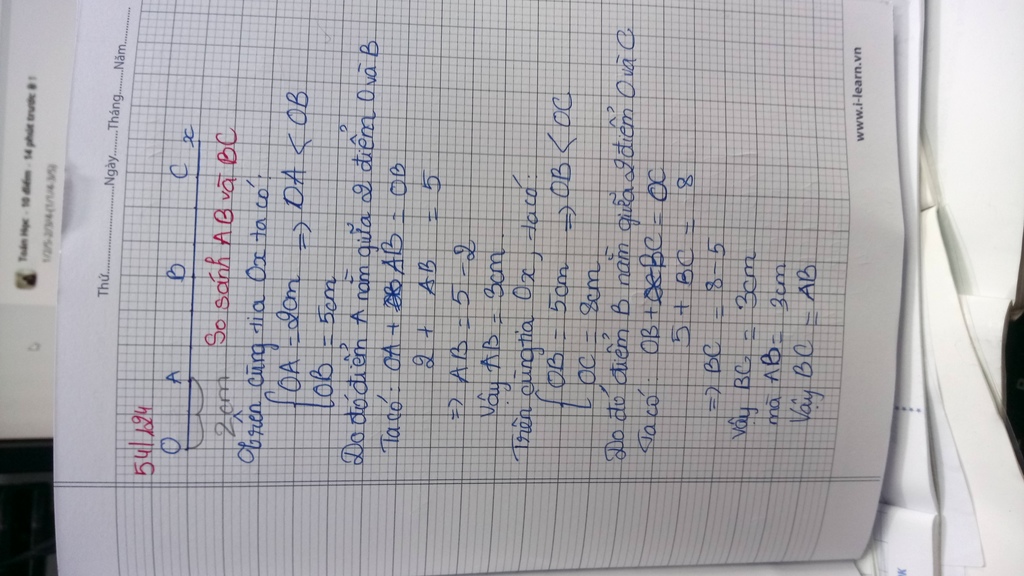 Toán Học - 10 điểm - 14 phút trước
Thứ..............Ngày..........Tháng..........Năm..........
54/124
O A B C x
2cm So sánh AB và BC
Trên cùng tia Ox ta có:
OA = 2cm => OA < OB
OB = 5cm
Do đó điểm A nằm giữa 2 điểm O và B
Ta có: OA + AB = OB
2 + AB = 5
=> AB = 5 - 2
Vậy AB = 3cm.
Trên cùng tia Ox, ta có:
OB = 5cm => OB < OC
OC = 8cm
Do đó điểm B nằm giữa 2 điểm O và C
Ta có: OB + BC = OC
5 + BC = 8
=> BC = 8 - 5
Vậy BC = 3cm
mà AB = 3cm
Vậy BC = AB
www.i-learn.vn